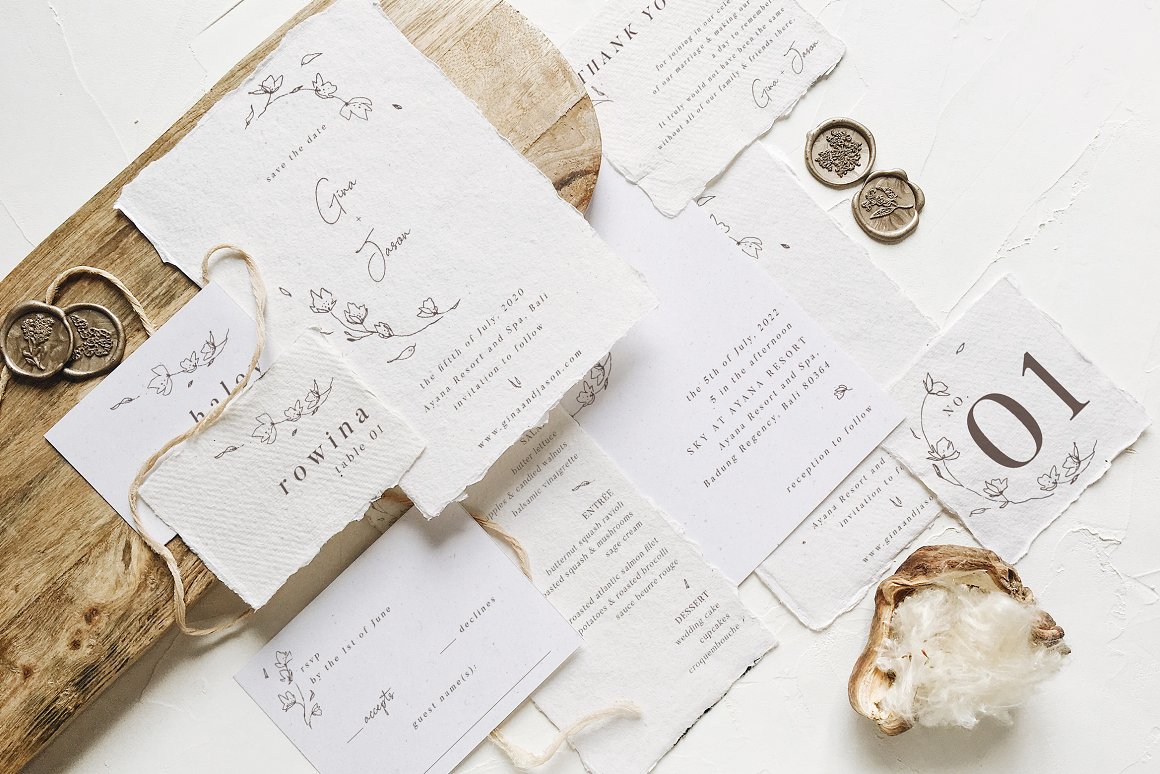 save the date
Gina
+
Jason
the fifith of July, 2020
Ayana Resort and Spa, Bali
invitation to follow
www.ginaandjason.com
THANK YO
for joining in our cele
of our marriage & making our
a day to remember
It truly would not have been the same
without all of our family & friends there.
Gina + Jason
rowina
table 01
the 5th of July, 2022
5 in the afternoon
SKY AT AYANA RESORT
Ayana Resort and Spa,
Badung Regency, Bali 80364
reception to follow
NO.
01
Ayana Resort and
invitation to
www.ginaandjas
butter lettuce
apples & candied walnuts
balsamic vinaigrette
ENTRÉE
butternut squash ravioli
roasted squash & mushrooms
sage cream
roasted atlantic salmon filet
potatoes & roasted broccili
sauce beurre rouge
DESSERT
wedding cake
cupcakes
croquembouche
rsvp
by the 1st of June
accepts
declines
guest name(s):